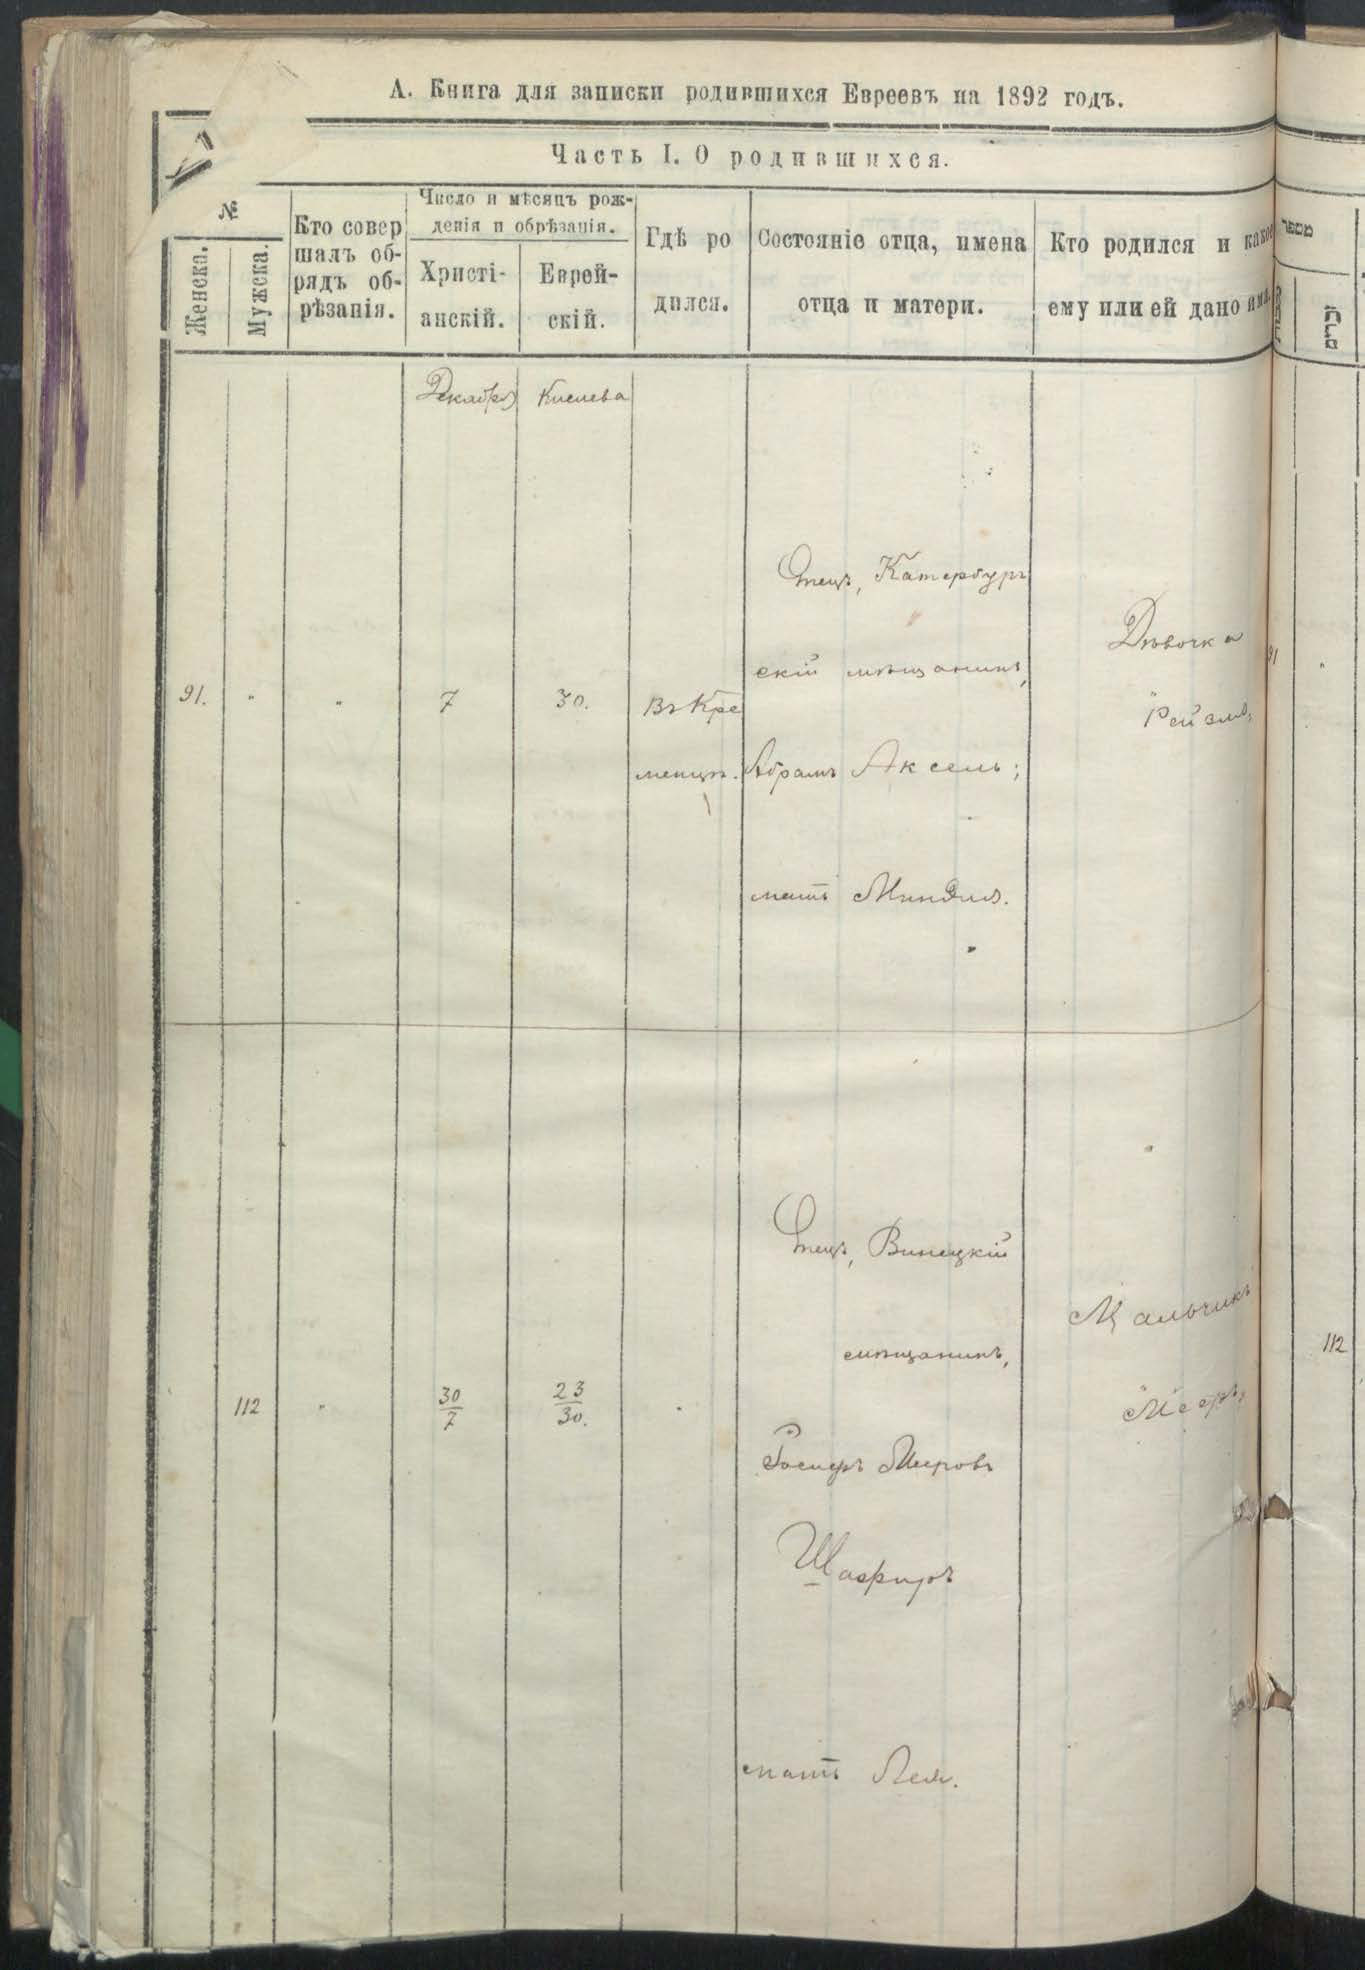 А. Книга для записки родившихся Евреевъ на 1892 годъ.
Часть I. О родившихся.
№
Женска.
Мужска.
Кто совер
шалъ об-
рядъ об-
рѣзанія.
Число и мѣсяцъ рож-
денія и обрѣзанія.
Христі-
анскій.
Еврей-
скій.
Гдѣ ро
дился.
Состояніе отца, имена
отца и матери.
Кто родился и какое
ему или ей дано имя.
מספר
זכרים
Декабря
Кислева
91.
"
"
7
30.
Въ Кре
менцѣ.
Отецъ, Катербург
скій мѣщанинъ,
Абрамъ Аксель;
мать Миндля.
Дѣвочка
"Рейзля,
91
"
112
"
30
7
23
30.
Отецъ, Винецкій
мѣщанинъ,
Іосифъ Мееровъ
Шафиръ
мать Лея.
Мальчикъ
"Мееръ,
112